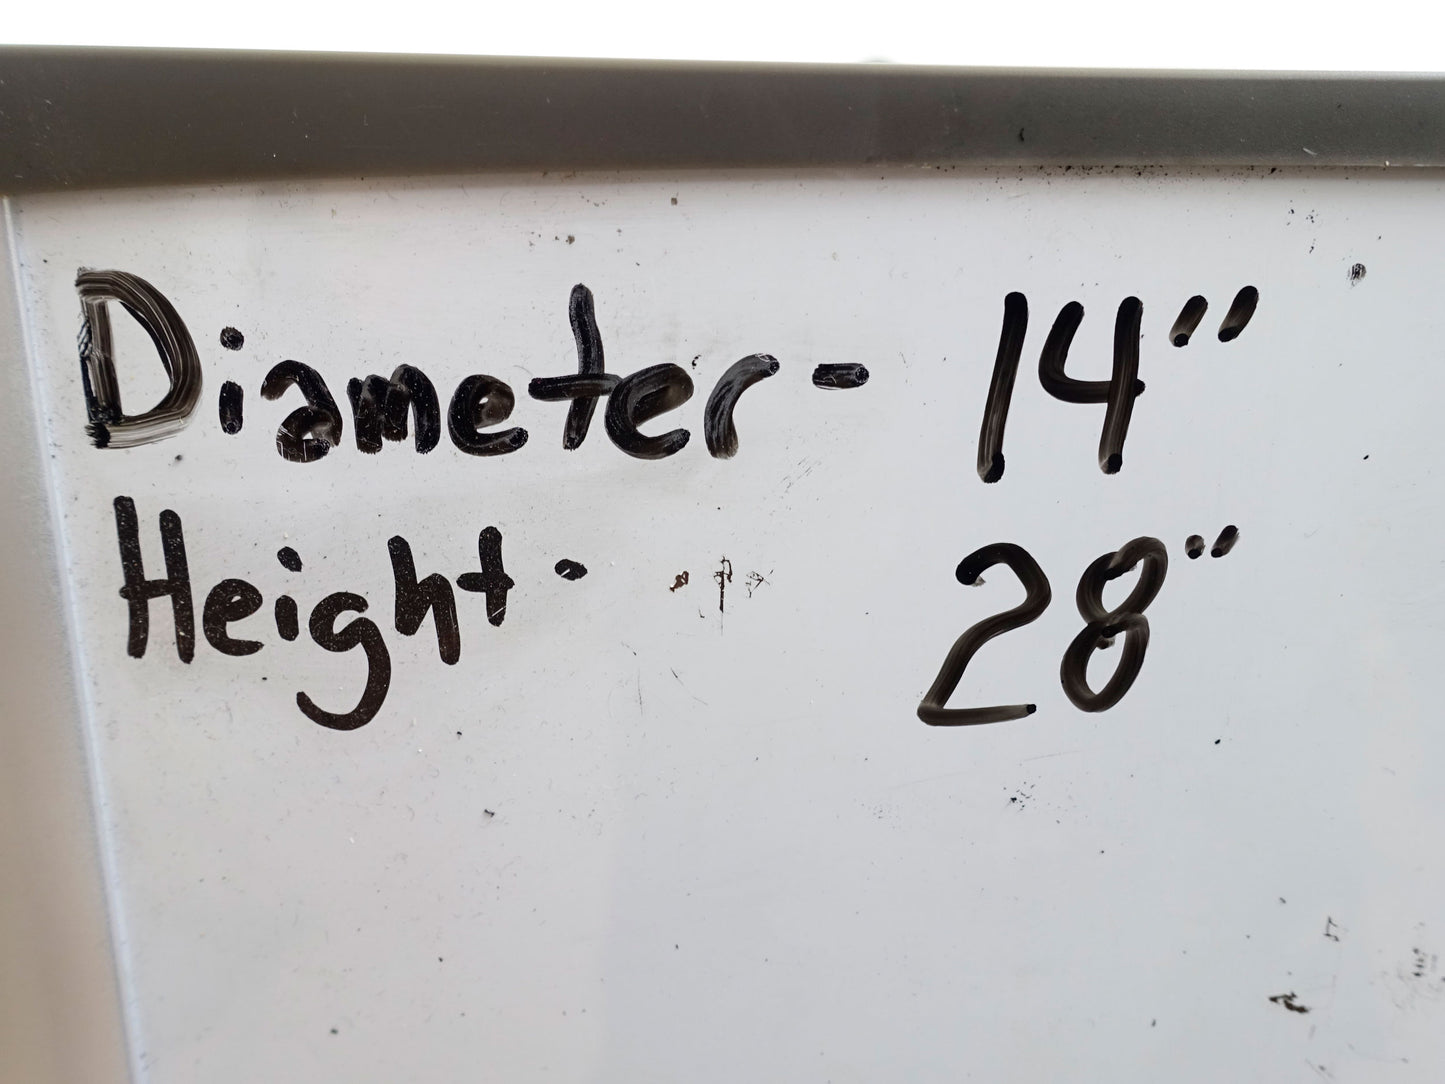 Diameter- 14"
Height- 28"